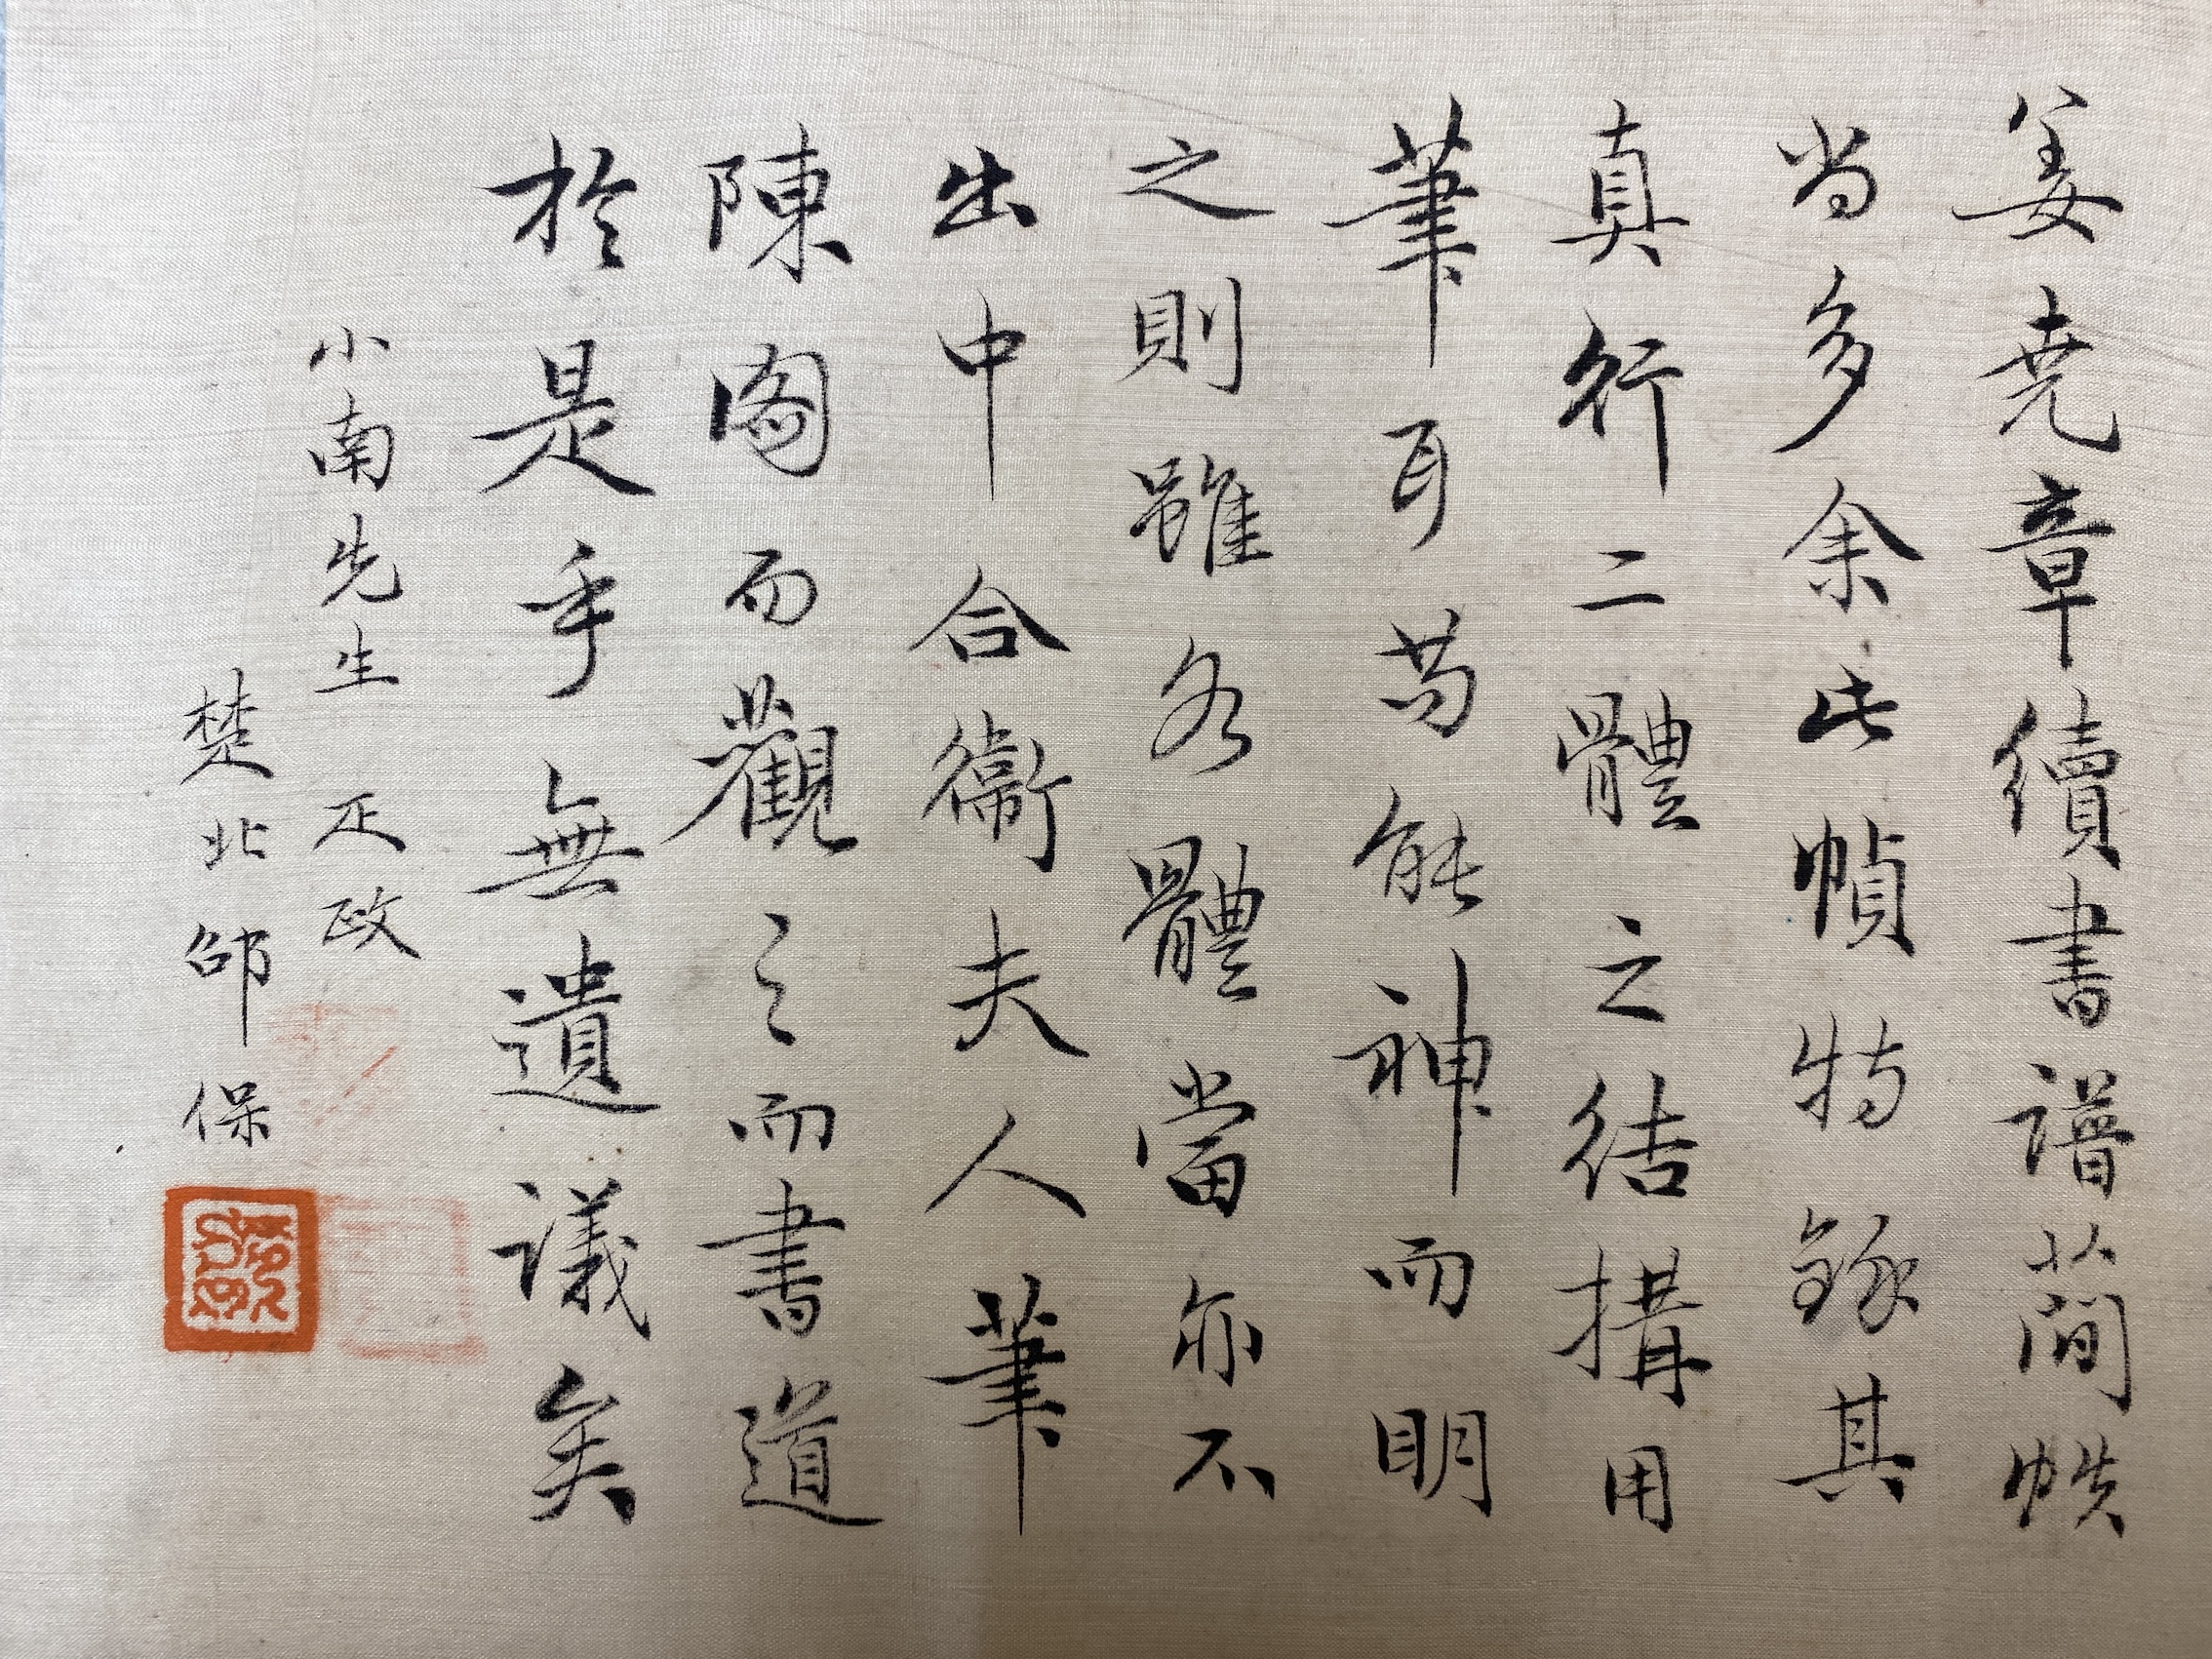 姜堯章續書譜蕳帙
尚多余此幀特錄其
真行二體之结搆用
筆耳苟能神而明
之則雖各體當亦不
出中合衞夫人筆
陳圖而觀之而書道
於是乎無遺議矣
小南先生 疋政
楚北邵保